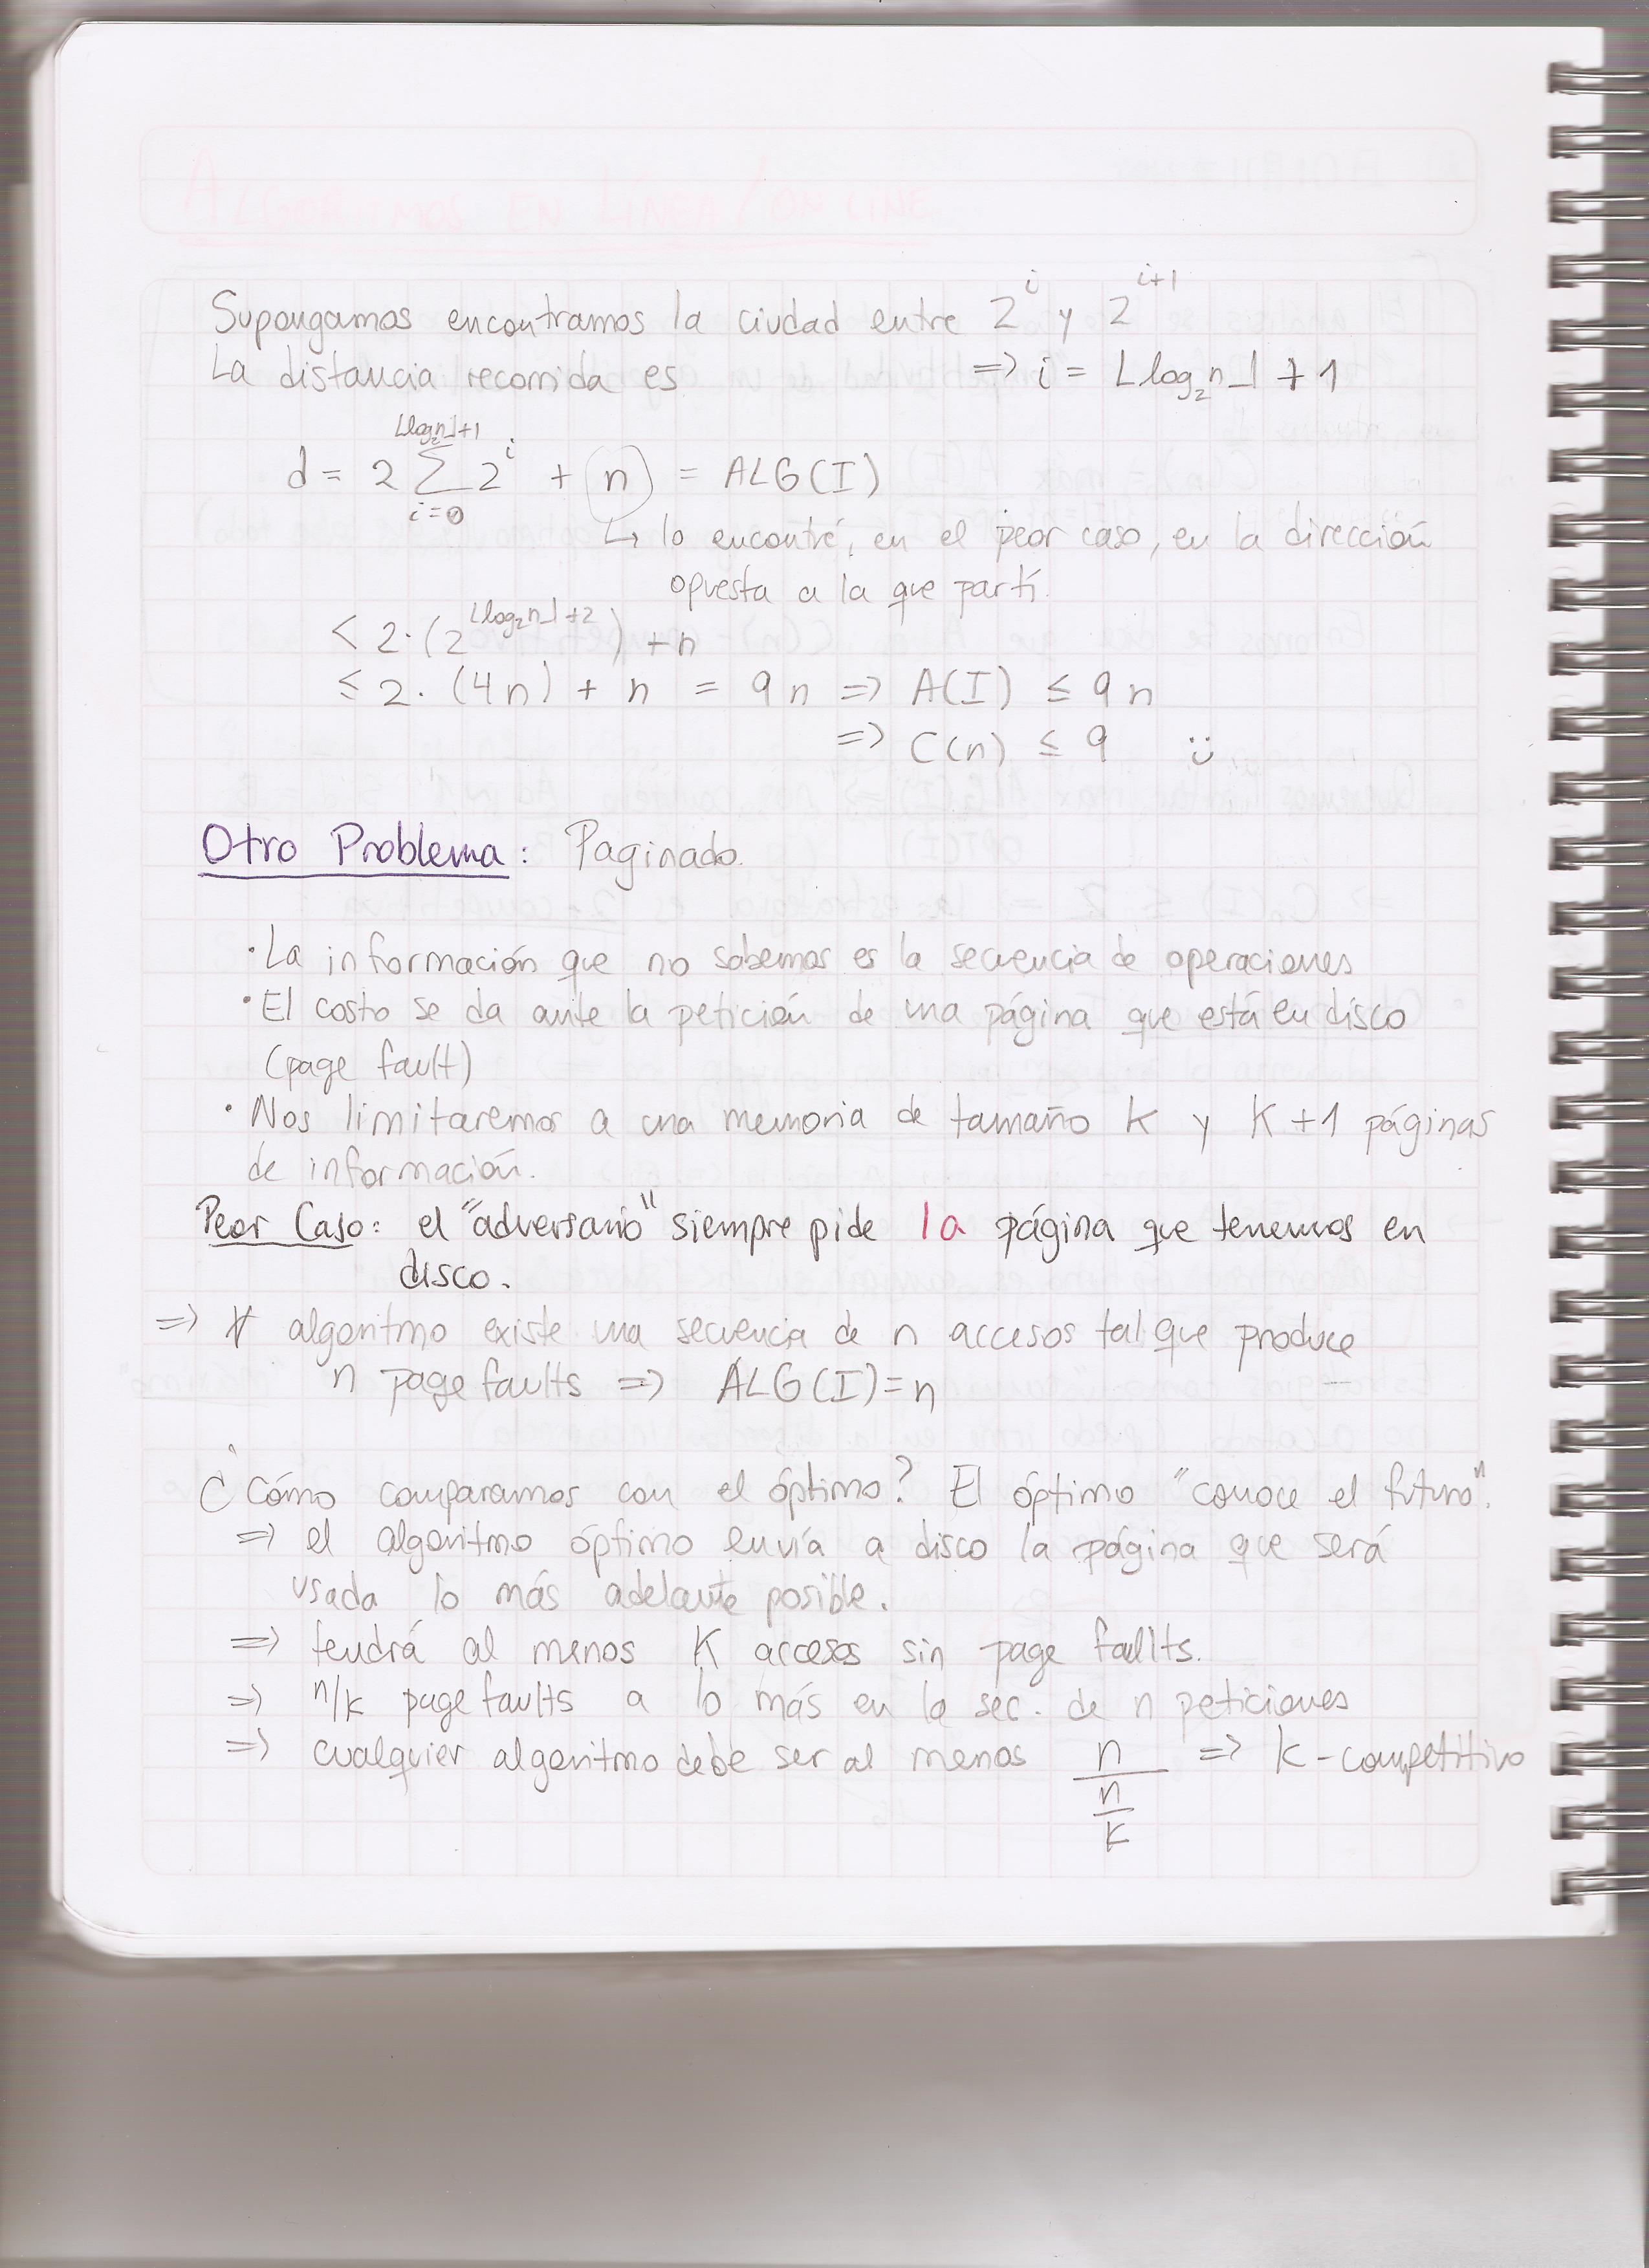 ALGORITMOS EN LÍNEA / ON LINE
Supongamos encontramos la ciudad entre 2^i y 2^{i+1}
La distancia recorrida es => i = ⌊log₂n⌋ + 1
d = 2 Σ_{i=0}^{⌊log₂n⌋+1} 2^i + n = ALG(I)
↳ lo encontré, en el peor caso, en la dirección
opuesta a la que partí.
< 2·(2^{⌊log₂n⌋+2}) + n
≤ 2·(4n) + n = 9n => A(I) ≤ 9n
=> C(n) ≤ 9 :)
Otro Problema: Paginado.
· La información que no sabemos es la secuencia de operaciones
· El costo se da ante la petición de una página que está en disco
(page fault)
· Nos limitaremos a una memoria de tamaño K y K+1 páginas
de información.
Peor Caso: el "adversario" siempre pide la página que tenemos en
disco.
=> ∀ algoritmo existe una secuencia de n accesos tal que produce
n page faults => ALG(I)=n
¿Cómo comparamos con el óptimo? El óptimo "conoce el futuro".
=> el algoritmo óptimo envía a disco la página que será
usada lo más adelante posible.
=> tendrá al menos K accesos sin page faults.
=> n/k page faults a lo más en la sec. de n peticiones
=> cualquier algoritmo debe ser al menos n/(n/k) => k-competitivo